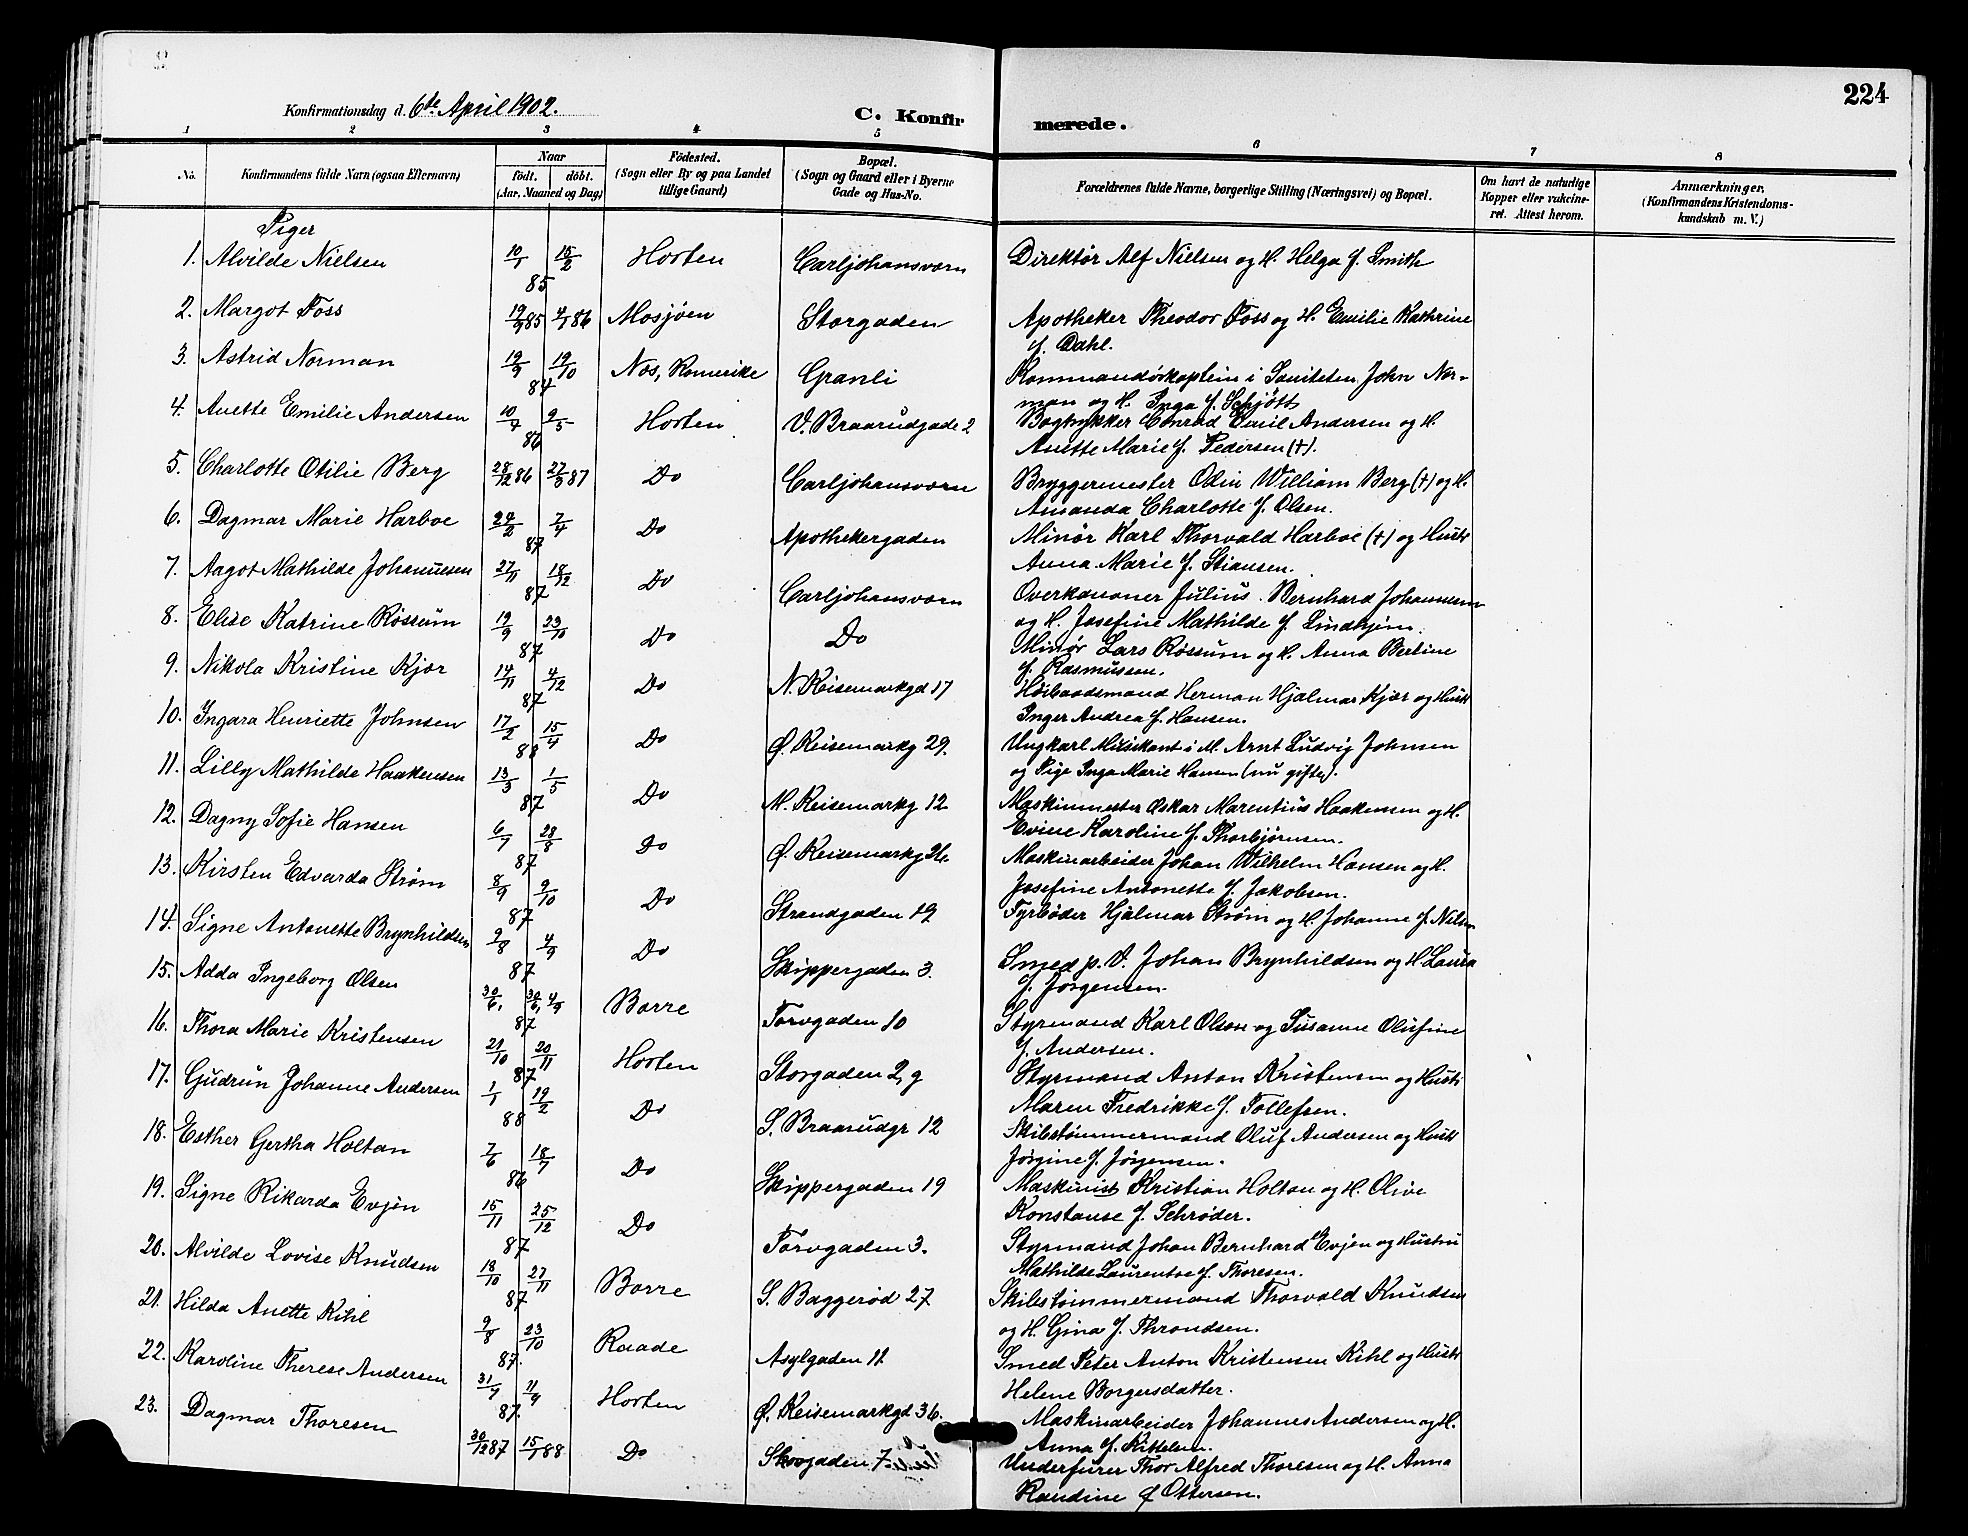 224
Konfirmationsdag d. 6te April 1902.
C. Konfir
merede.
1 2 3 4 5 6 7 8
No. Konfirmandens fulde Navn (ogsaa Efternavn) Naar Födested. Bopæl. Forældrenes fulde Navne, borgerlige Stilling (Næringsvei) og Bopæl. Om havt de naturlige Anmærkninger.
födt. döbt. (Sogn eller By og paa Landet (Sogn og Gaard eller i Byerne Kopper eller vakcine- (Konfirmandens Kristendoms-
(Aar, Maaned og Dag) tillige Gaard) Gade og Hus-No. ret. Attest herom. kundskab m. V.)
Piger
1. Alvilde Nielsen 10/1 15/2 85 Horten Carljohansværn Direktør Alf Nielsen og H. Helga f. Smith
2. Margot Foss 19/9 85 4/1 86 Mosjøen Storgaden Apotheker Theodor Foss og H. Emilie Kathrine
f. Dahl.
3. Astrid Norman 19/9 19/10 84 Nes, Romerike Granli Kommandørkaptein i Saniteten John Nor-
man og H. Inga f. Schjøtt
4. Anette Emilie Andersen 10/4 9/5 86 Horten V. Braarudgade 2 Bogtrykker Conrad Emil Andersen og H.
Anette Marie f. Pedersen (+).
5. Charlotte Otilie Berg 28/12 86 27/3 87 Do Carljohansværn Bryggermester Odin William Berg (+) og H.
Amanda Charlotte f. Olsen.
6. Dagmar Marie Harboe 24/2 7/4 87 Do Apothekergaden Minør Karl Thorvald Harboe (+) og Hustr
Anna Marie f. Stiansen.
7. Aagot Mathilde Johannesen 27/11 18/12 87 Do Carljohansværn Overkanoner Julius Bernhard Johannesen
og H. Josefine Mathilde f. Lindhjem.
8. Elise Katrine Røssum 19/9 23/10 87 Do Do Minør Lars Røssum og H. Anna Bertine
f. Rasmussen.
9. Nikola Kristine Kjær 14/11 4/12 87 Do N. Keisemarkgd 17 Høibaadsmand Herman Hjalmar Kjær og Hustr
Inger Andrea f. Hansen.
10. Ingara Henriette Johnsen 17/2 15/4 88 Do Ø. Keisemarkg 29. Ungkarl Musikant i M. Arnt Ludvig Johnsen
og Pige Inga Marie Hansen (nu gifte).
11. Lilly Mathilde Haakensen 13/3 1/5 87 Do M. Keisemarkg 12 Maskinmester Oskar Marentius Haakensen og H.
Evine Karoline f. Thorbjørnsen.
12. Dagny Sofie Hansen 6/7 28/8 87 Do Ø. Keisemarkg 26. Maskinarbeider Johan Wilhelm Hansen og H.
Josefine Antonette f. Jakobsen.
13. Kirsten Edvarda Strøm 8/9 9/10 87 Do Strandgaden 19 Fyrbøder Hjalmar Strøm og H. Johanne f. Nilsen
14. Signe Antonette Brynhildsen 9/8 4/9 87 Do Skippergaden 3. Smed p. V. Johan Brynhildsen og H. Laura
f. Jørgensen.
15. Adda Ingeborg Olsen 30/6. 30/6, 4/9 87 Borre Torvgaden 10 Styrmand Karl Olsen og Susanne Olufine
f. Andersen.
16. Thora Marie Kristensen 21/10 20/11 87 Horten Storgaden 2,9 Styrmand Anton Kristensen og Hustr
Maren Fredrikke f. Tollefsen.
17. Gudrun Johanne Andersen 1/1 19/2 88 Do S. Braarudgr 12 Skibstømmermand Oluf Andersen og Hustr
Jørgine f. Jørgensen.
18. Esther Gertha Holtan 7/6 18/7 86 Do Skippergaden 19 Maskinist Kristian Holtan og H. Olive
Konstanse f. Schrøder.
19. Signe Rikarda Evjen 15/11 25/12 87 Do Torvgaden 3. Styrmand Johan Bernhard Evjen og Hustru
Mathilde Laurentse f. Thoresen.
20. Alvilde Lovise Knudsen 18/10 27/11 87 Borre S. Baggerød 27 Skibstømmermand Thorvald Knudsen
og H. Gina f. Throndsen.
21. Hilda Anette Kihl 9/8 23/10 87. Raade Asylgaden 11 Smed Peter Anton Kristensen Kihl og Hustr
Helene Borgersdatter.
22. Karoline Therese Andersen 31/7 11/9 87. Horten Ø. Keisemarkgd 36. Maskinarbeider Johannes Andersen og H.
Anna f. Kittelsen.
23. Dagmar Thoresen 30/12 87 15/1 88 Do Skovgaden 7 Underfurer Thor Alfred Thoresen og H. Anna
Randine f Ottersen.